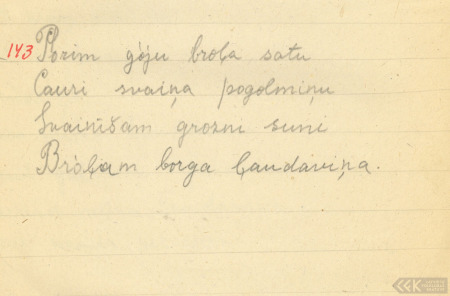 143 Porim gòju broļa satu
Cauri svaiņa pogolmiņu
Svainīšam grozni suni
Bròļam borga ļaudaviņa.